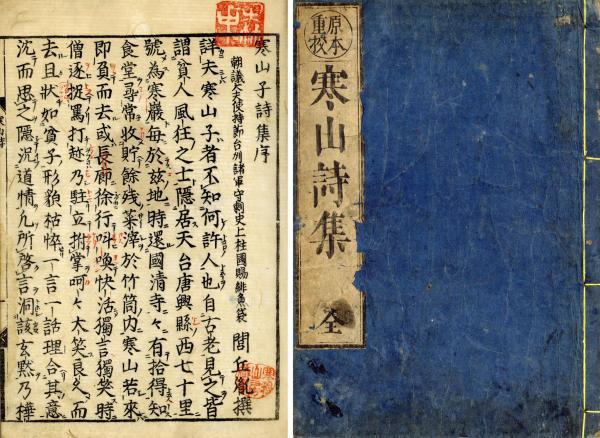 原本
重校
寒山詩集 全
寒山子詩集序
朝議大夫使持節台州諸軍守刺史上柱國賜緋魚袋 閭丘胤撰
詳夫寒山子者不知何許人也自古老見之皆
謂貧人風狂之士隱居天台唐興縣西七十里
號為寒巖每於茲地時還國清寺々有拾得知
食堂尋常收貯餘殘菜滓於竹筒內寒山若來
即負而去或長廊徐行叫喚快活獨言獨笑時
僧遂捉罵打趁乃駐立拊掌呵々大笑良久而
去且狀如貧子形貌枯悴一言一話理合其意
沉而思之隱況道情凡所啓言洞該玄默乃樺
寒山詩